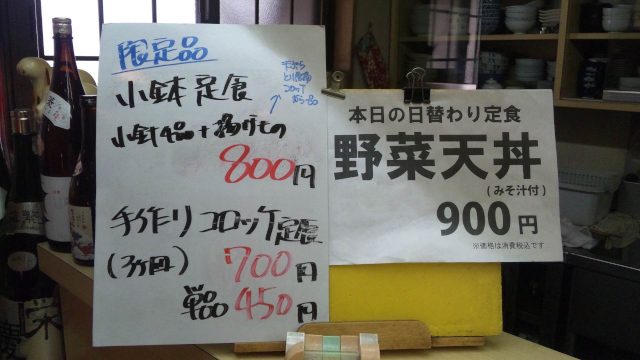 限定品
小鉢定食
小針4品+揚げもの
800円
手作りコロッケ定食
(3ヶ回)
700円
単品450円
本日の日替わり定食
野菜天丼
(みそ汁付)
900円
※価格は消費税込です